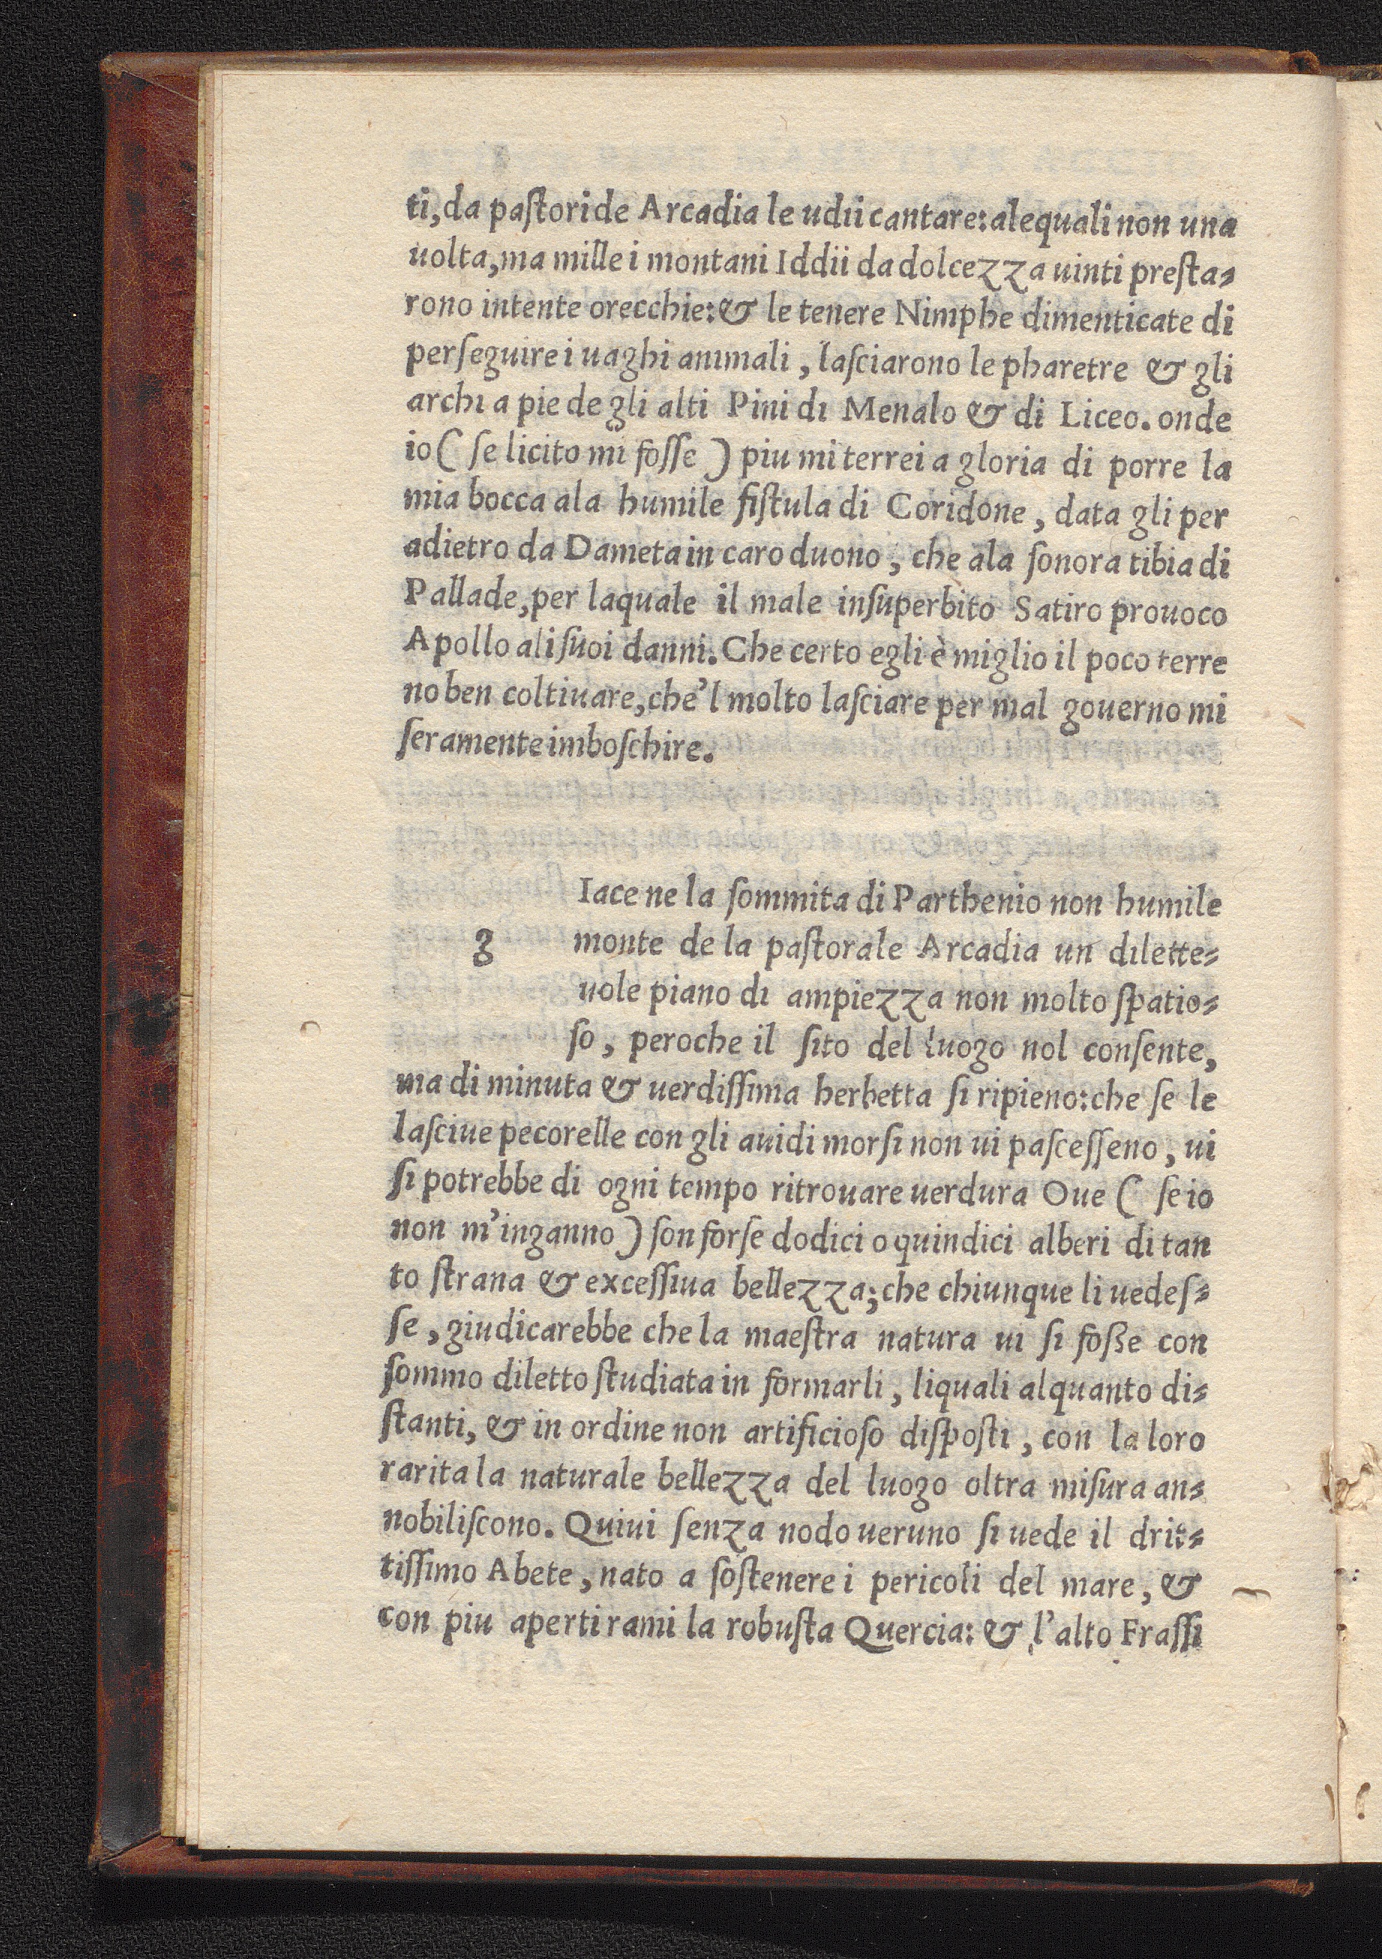 ti, da paſtori de Arcadia le udii cantare: ale quali non una
uolta, ma mille i montani Iddii da dolcezza uinti preſta-
rono intente orecchie: & le tenere Nimphe dimenticate di
perſeguire i uaghi animali, laſciarono le pharetre & gli
archi a pie de gli alti Pini di Menalo & di Liceo. onde
io ( ſe licito mi foſſe ) piu mi terrei a gloria di porre la
mia bocca ala humile fiſtula di Coridone, data gli per
adietro da Dameta in caro duono, che ala ſonora tibia di
Pallade, per laquale il male inſuperbito Satiro prouoco
Apollo ali ſuoi danni. Che certo egli è miglio il poco terre
no ben coltiuare, che'l molto laſciare per mal gouerno mi
ſeramente imboſchire.
Iace ne la ſommita di Parthenio non humile
g monte de la paſtorale Arcadia un dilette-
uole piano di ampiezza non molto ſpatio-
ſo, peroche il ſito del luogo nol conſente,
ma di minuta & uerdiſſima herbetta ſi ripieno: che ſe le
laſciue pecorelle con gli auidi morſi non ui paſceſſeno, ui
ſi potrebbe di ogni tempo ritrouare uerdura Oue ( ſe io
non m'inganno ) ſon forſe dodici o quindici alberi di tan
to ſtrana & exceſſiua bellezza; che chiunque li uedeſ-
ſe, giudicarebbe che la maeſtra natura ui ſi foſſe con
ſommo diletto ſtudiata in formarli, liquali alquanto di-
ſtanti, & in ordine non artificioſo diſpoſti, con la loro
rarita la naturale bellezza del luogo oltra miſura an-
nobiliſcono. Quiui ſenza nodo ueruno ſi uede il drit-
tiſſimo Abete, nato a ſoſtenere i pericoli del mare, &
con piu aperti rami la robuſta Quercia: & l'alto Fraſſi